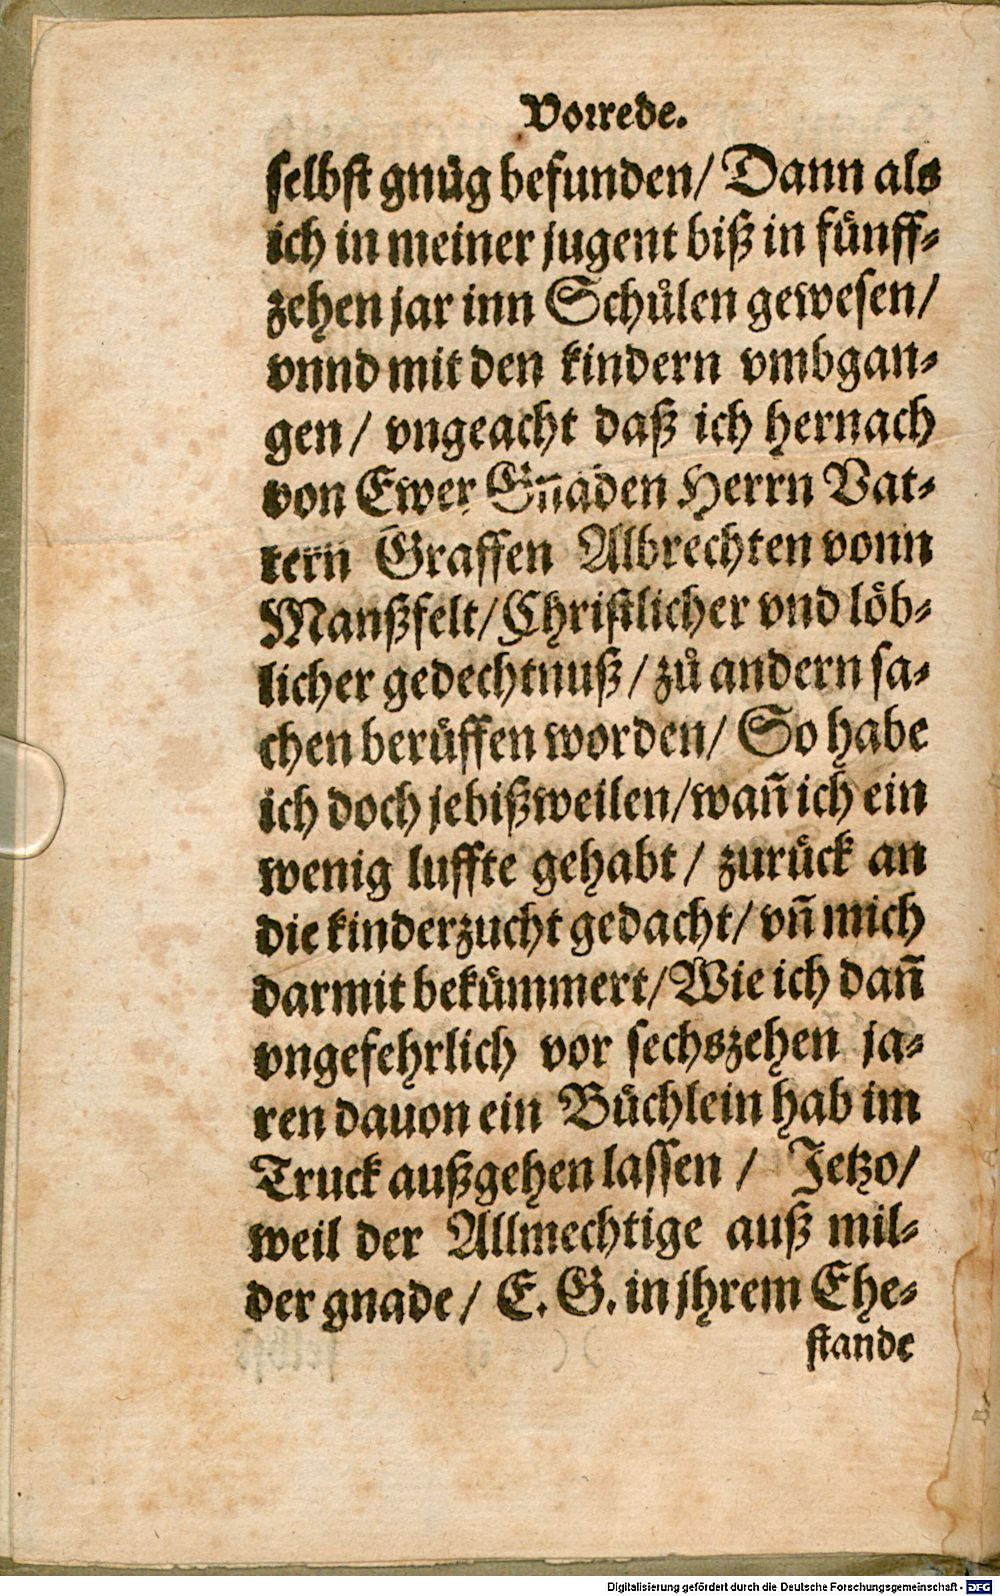 Vorrede.
selbst gnůg befunden/ Dann als
ich in meiner jugent biß in fünff⸗
zehen jar inn Schůlen gewesen/
vnnd mit den kindern vmbgan⸗
gen/ vngeacht daß ich hernach
von Ewer Gnaden Herrn Vat⸗
tern Graffen Albrechten vonn
Manßfelt/ Christlicher vnd löb⸗
licher gedechtnuß/ zů andern sa⸗
chen berůffen worden/ So habe
ich doch jebißweilen/ wañ ich ein
wenig luffte gehabt/ zurück an
die kinderzucht gedacht/ vñ mich
darmit bekümmert/ Wie ich dañ
vngefehrlich vor sechszehen ja⸗
ren dauon ein Büchlein hab im
Truck außgehen lassen/ Jetzo/
weil der Allmechtige auß mil⸗
der gnade/ E. G. in jhrem Ehe⸗
stande
Digitalisierung gefördert durch die Deutsche Forschungsgemeinschaft - DFG